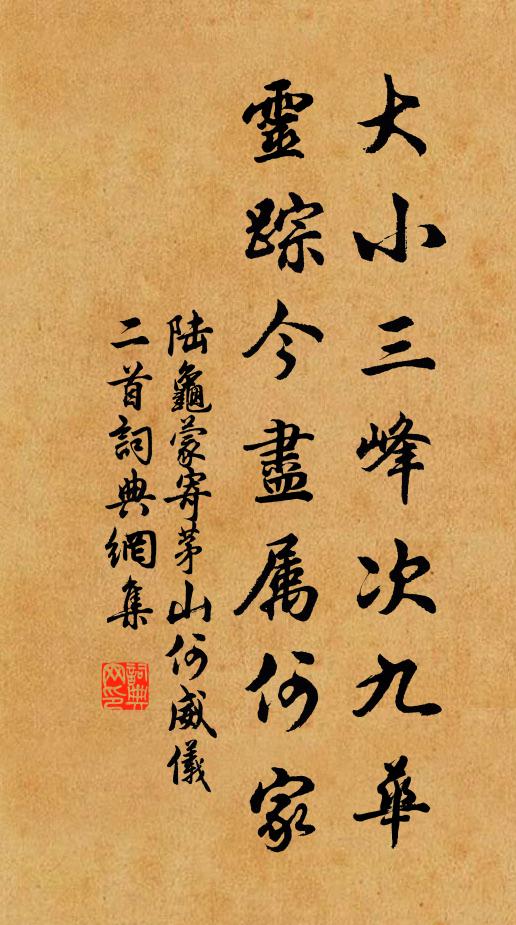 大小三峰次九華
靈踪今盡属何家
陆龜蒙寄茅山何威儀
二首詞典網集
詞典
网印